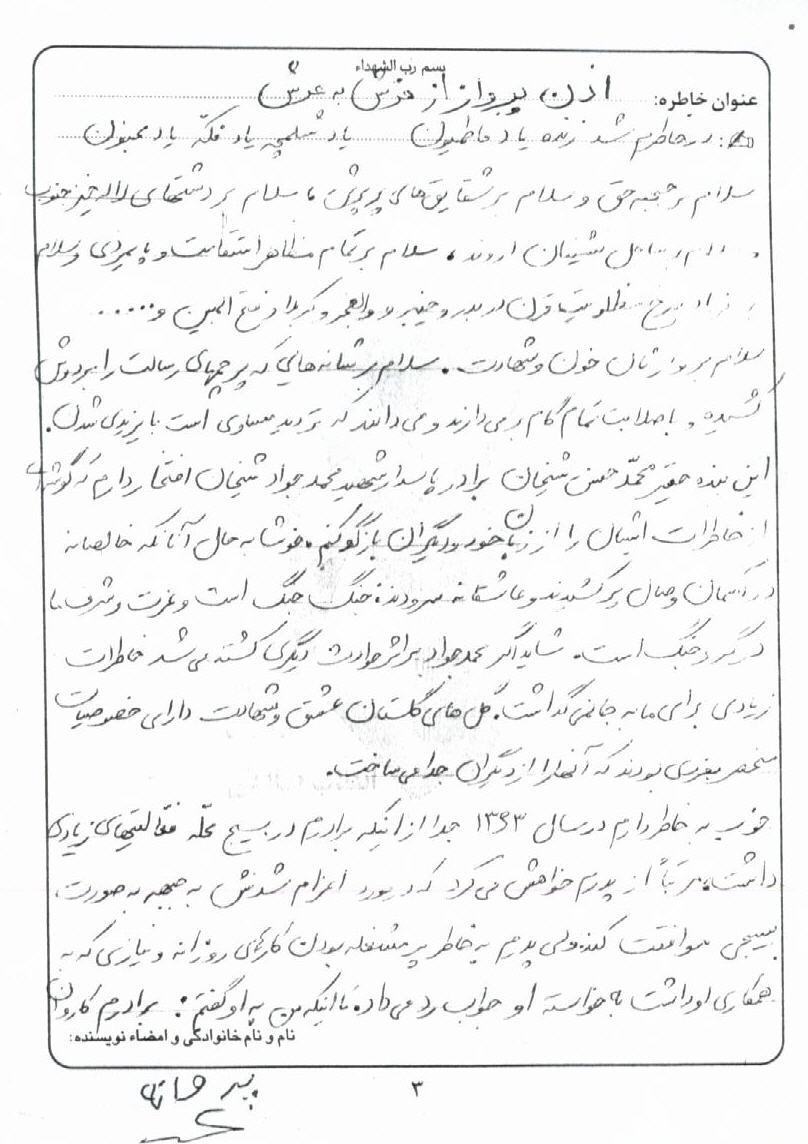 بسم رب الشهداء
عنوان خاطره: اذن پرواز از فرش به عرش
در خاطرم شد زنده یاد فاطمیون یاد شلمچه یاد فکه یاد مجنون
سلام بر جبهه حق و سلام بر شقایق‌های پرپرش، سلام بر دشتهای لاله خیز جنوب
ساحل نشینان اروند، سلام بر تمام مظاهر استقامت و پایمردی و سلام
مظلومیت قرن در بدر و خیبر و والفجر و کربلا و فتح المبین و .....
سلام بر خون و شهادت. سلام بر شانه‌هایی که پرچمهای رسالت را بر دوش
کشیده و با صلابت تمام گام بر می‌دارند و می‌دانند که تردید مساوی است با یزیدی شدن.
این بنده حقیر محمد حسن شیخان برادر پاسدار شهید محمد جواد شیخان افتخار دارم که گوشه‌ای
از خاطرات ایشان را از زبان خود و دیگران بازگو کنم. خوشا به حال آنانکه خالصانه
در آسمان وصال پر کشیدند و عاشقانه سرودند: جنگ جنگ است و عزت و شرف ما
در گرو جنگ است. شاید اگر محمد جواد بر اثر حوادث دیگری کشته می‌شد خاطرات
زیادی برای ما به جا نمی‌گذاشت. گل‌های گلستان عشق و شهادت دارای خصوصیات
منحصر بفردی بودند که آنها را از دیگران جدا می‌ساخت.
خوب به خاطر دارم در سال ۱۳۶۳ جدا از اینکه برادرم در بسیج محله فعالیتهای زیادی
داشت، مرتباً از پدرم خواهش می‌کرد که در مورد اعزام شدنش به جبهه به صورت
بسیجی موافقت کند ولی پدرم به خاطر پر مشغله بودن کارهای روزانه و نیازی که به
همکاری او داشت به خواسته او جواب رد می‌داد. تا اینکه من به او گفتم: برادرم کاروان
نام و نام خانوادگی و امضاء نویسنده:
۳